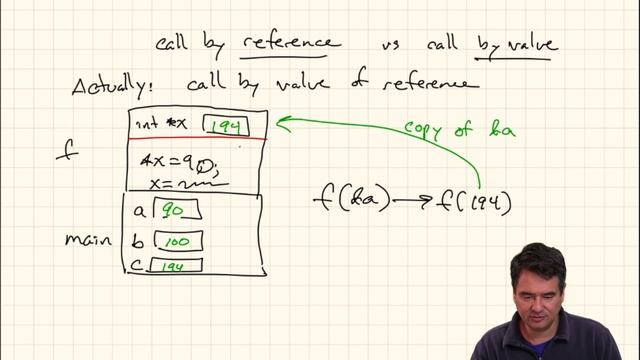 call by reference vs call by value
Actually: call by value of reference
int *x 194
copy of &a
f
*x = 90;
x =
f(&a) → f(194)
a 90
main b 100
c 194